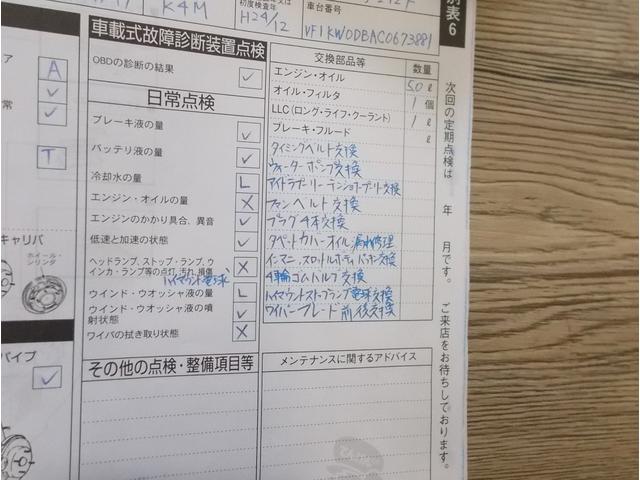 K4M
初度検査年
H24/12
車台番号
VF1KW0DBAC0673881
別表6
車載式故障診断装置点検
OBDの診断の結果
日常点検
ブレーキ液の量
バッテリ液の量
冷却水の量 L
エンジン・オイルの量 X
エンジンのかかり具合、異音
低速と加速の状態
ヘッドランプ、ストップ・ランプ、ウ
インカ・ランプ等の点灯、汚れ、損傷 X
ハイマウント電球
ウインド・ウオッシャ液の量 L
ウインド・ウオッシャ液の噴
射状態
ワイパの拭き取り状態 X
その他の点検・整備項目等
交換部品等 数量
エンジン・オイル 5.0 ℓ
オイル・フィルタ 1 個
LLC(ロング・ライフ・クーラント) 1 ℓ
ブレーキ・フルード ℓ
タイミングベルト交換
ウォーターポンプ交換
アイドラプーリーテンショナープーリ交換
ファンベルト交換
プラグ4本交換
タペットカバーオイル漏れ修理
インマニ、スロットルボディパッキン交換
4輪ゴムバルブ交換
ハイマウントストップランプ電球交換
ワイパーブレード前後交換
メンテナンスに関するアドバイス
次回の定期点検は 年 月です。 ご来店をお待ちしております。
A
常
T
キャリパ
ホイール・
シリンダ
パイプ